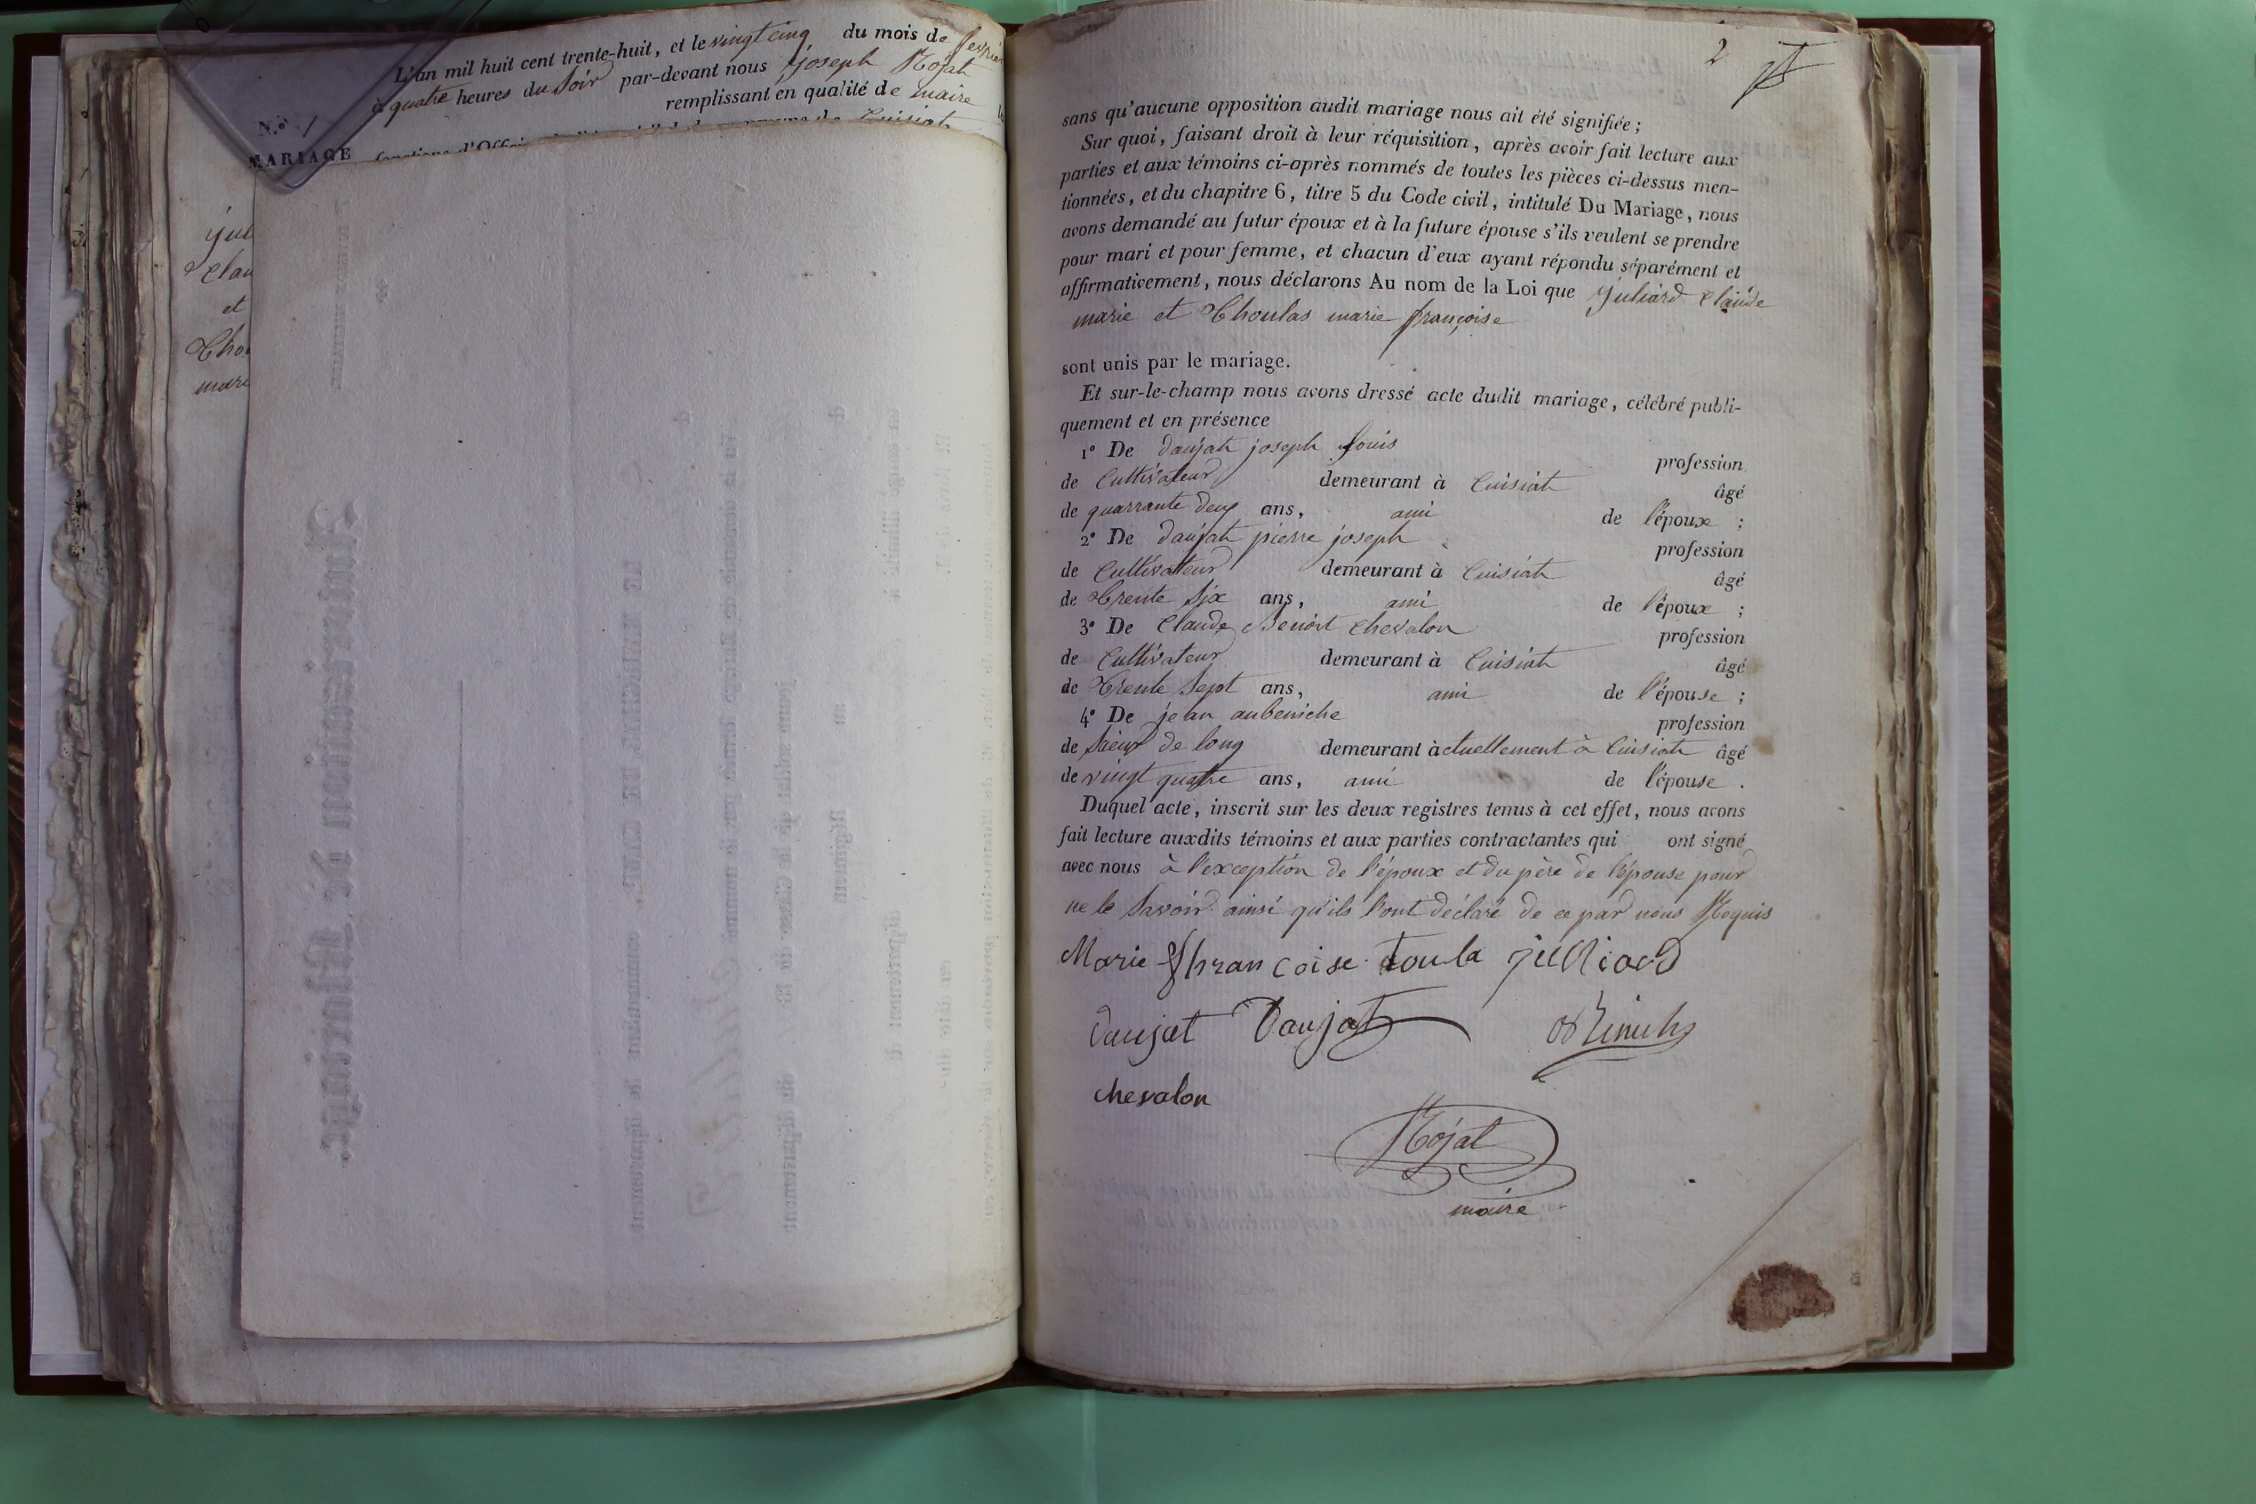 L'an mil huit cent trente-huit, et le vingt cinq du mois de
à quatre heures du Soir par-devant nous joseph Rojat
remplissant en qualité de maire
N.° 1
MARIAGE
jul
Clau
et
Cho
mari
2
sans qu'aucune opposition audit mariage nous ait été signifiée ;
Sur quoi, faisant droit à leur réquisition, après avoir fait lecture aux
parties et aux témoins ci-après nommés de toutes les pièces ci-dessus men-
tionnées, et du chapitre 6, titre 5 du Code civil, intitulé Du Mariage, nous
avons demandé au futur époux et à la future épouse s'ils veulent se prendre
pour mari et pour femme, et chacun d'eux ayant répondu séparément et
affirmativement, nous déclarons Au nom de la Loi que juliard Claude
marie et Thoulas marie françoise
sont unis par le mariage.
Et sur-le-champ nous avons dressé acte dudit mariage, célébré publi-
quement et en présence
1° De daujat joseph Louis profession
de Cultivateur demeurant à Cuisiat âgé
de quarrante deux ans, ami de l'époux ;
2° De daujat pierre joseph profession
de Cultivateur demeurant à Cuisiat âgé
de Trente Six ans, ami de l'époux ;
3° De Claude Benoit Chevalon profession
de Cultivateur demeurant à Cuisiat âgé
de Trente Sept ans, ami de l'épouse ;
4° De jean aubeniche profession
de Sieur de long demeurant actuellement à Cuisiat âgé
de vingt quatre ans, ami de l'épouse .
Duquel acte, inscrit sur les deux registres tenus à cet effet, nous avons
fait lecture auxdits témoins et aux parties contractantes qui ont signé
avec nous à l'exception de l'époux et du père de l'épouse pour
ne le Savoir ainsi qu'ils l'ont déclaré de ce par nous Requis
Marie fhrancoise toula julliard
daujat Daujat
chevalon
Rojat
maire